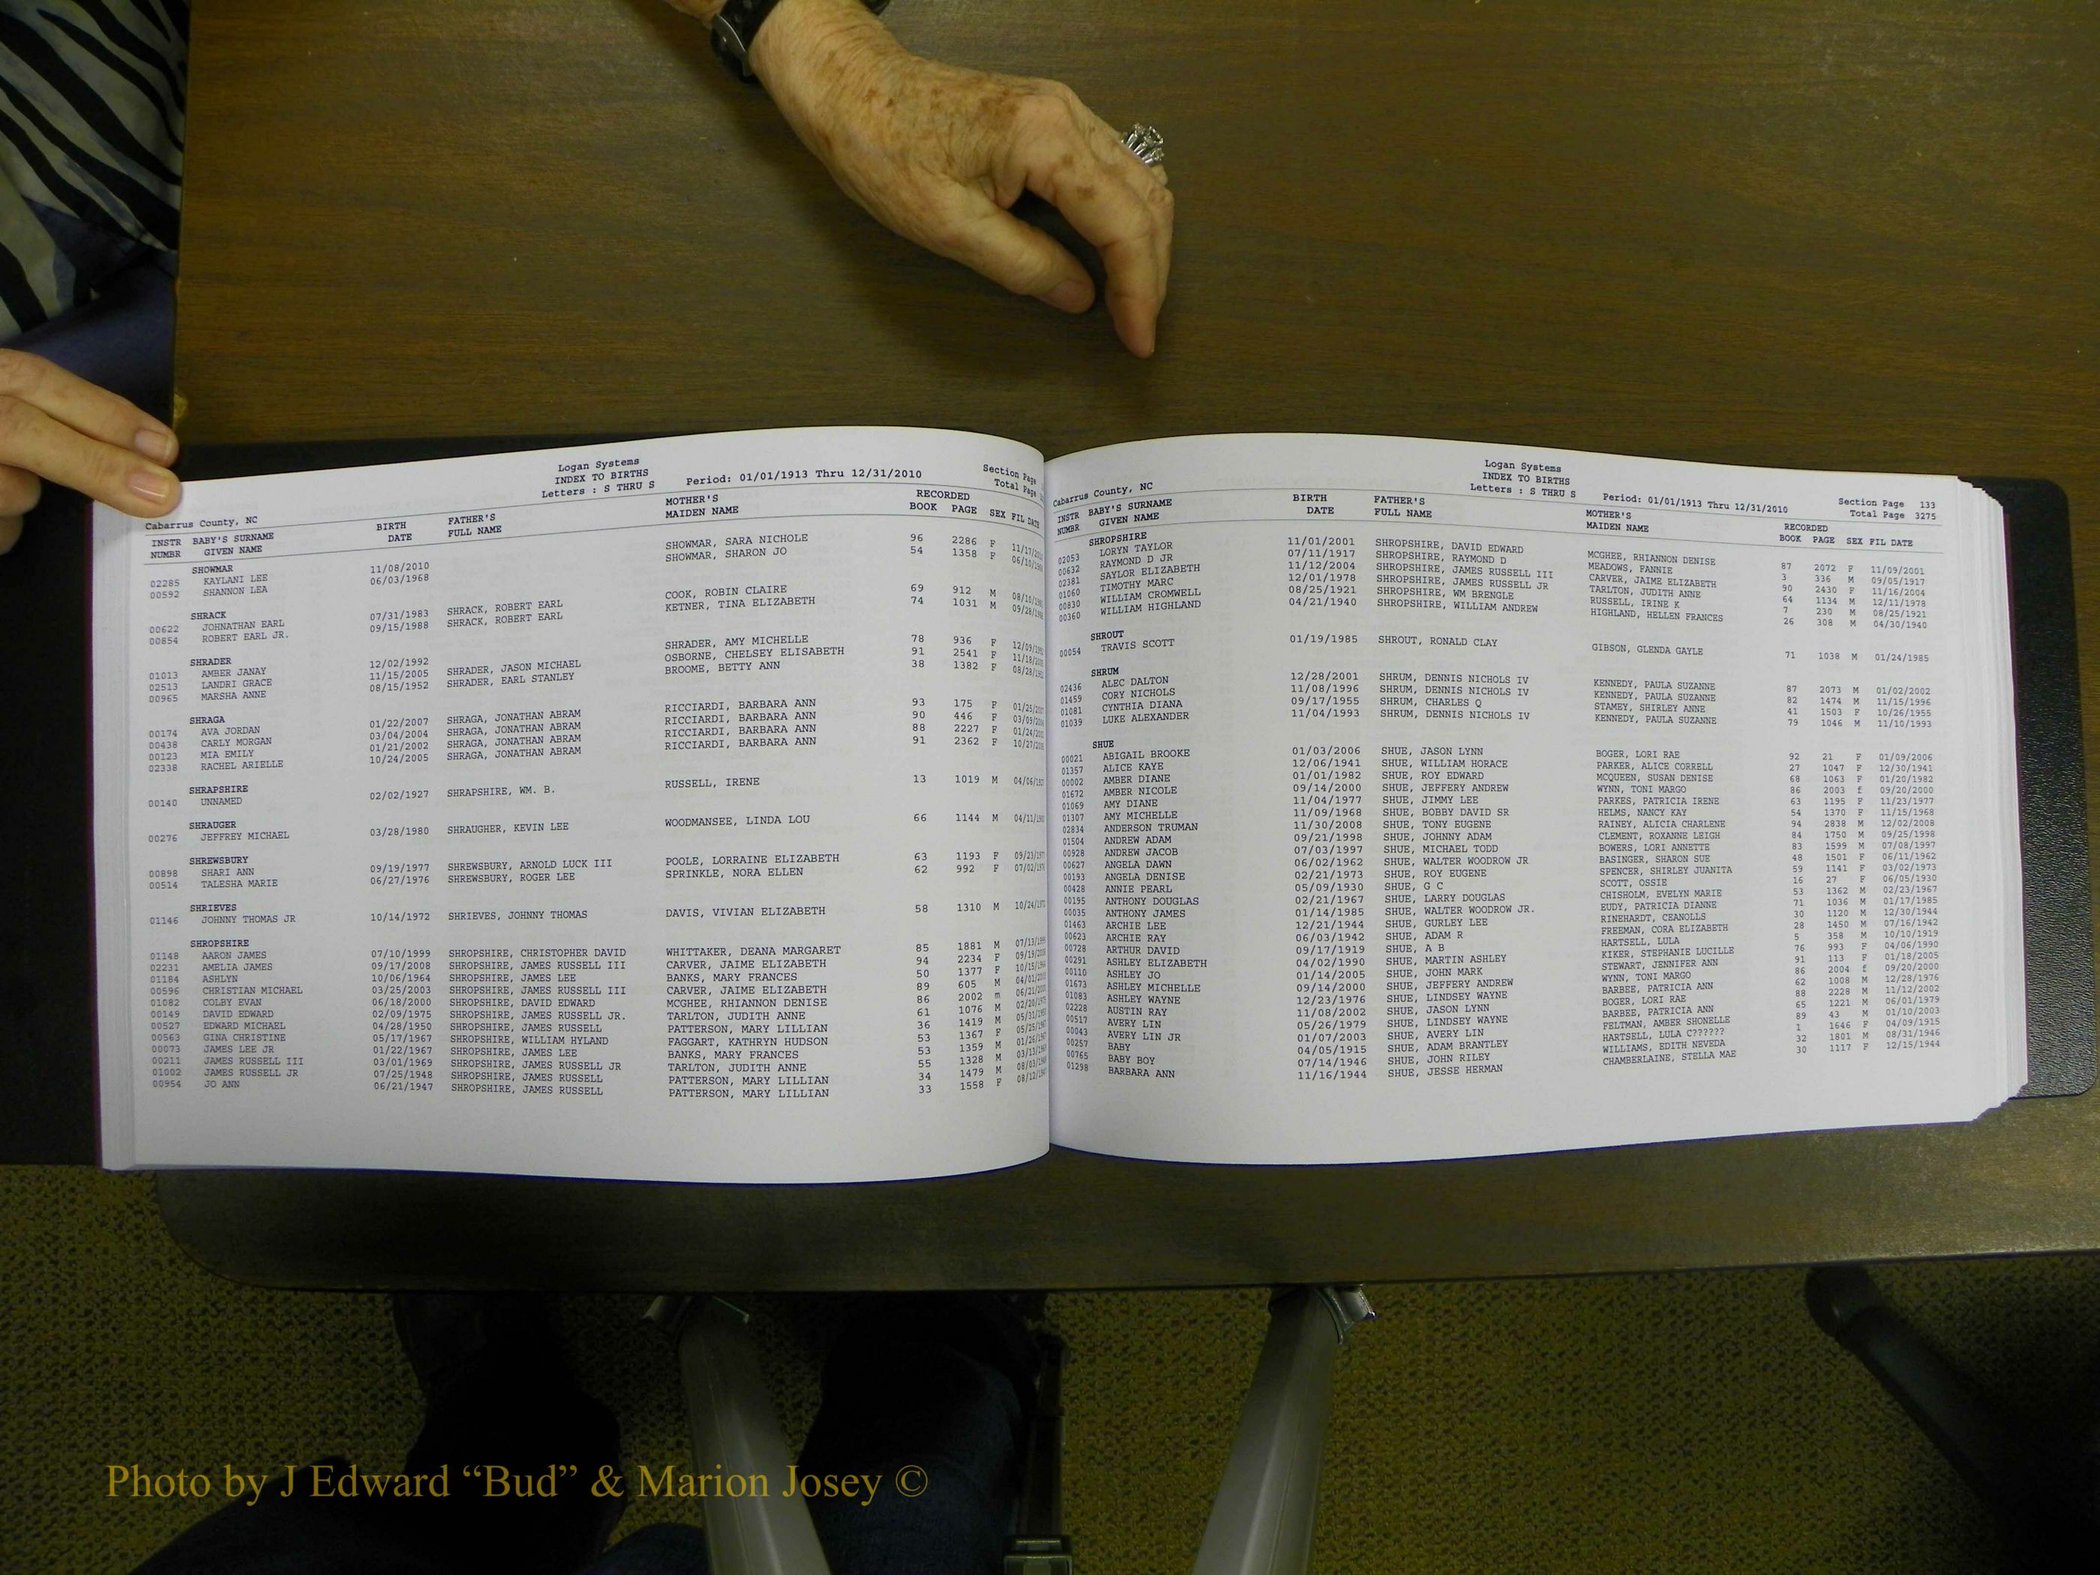 Logan Systems
INDEX TO BIRTHS
Cabarrus County, NC Letters : S THRU S Period: 01/01/1913 Thru 12/31/2010 Section Page
Total Page
INSTR BABY'S SURNAME BIRTH FATHER'S MOTHER'S RECORDED
NUMBR GIVEN NAME DATE FULL NAME MAIDEN NAME BOOK PAGE SEX FIL DATE
SHOWMAR
02285 KAYLANI LEE 11/08/2010 SHOWMAR, SARA NICHOLE 96 2286 F
00592 SHANNON LEA 06/03/1968 SHOWMAR, SHARON JO 54 1358 F
SHRACK
00622 JOHNATHAN EARL 07/31/1983 SHRACK, ROBERT EARL COOK, ROBIN CLAIRE 69 912 M
00854 ROBERT EARL JR. 09/15/1988 SHRACK, ROBERT EARL KETNER, TINA ELIZABETH 74 1031 M
SHRADER
01013 AMBER JANAY 12/02/1992 SHRADER, AMY MICHELLE 78 936 F
02513 LANDRI GRACE 11/15/2005 SHRADER, JASON MICHAEL OSBORNE, CHELSEY ELISABETH 91 2541 F
00965 MARSHA ANNE 08/15/1952 SHRADER, EARL STANLEY BROOME, BETTY ANN 38 1382 F
SHRAGA
00174 AVA JORDAN 01/22/2007 SHRAGA, JONATHAN ABRAM RICCIARDI, BARBARA ANN 93 175 F
00438 CARLY MORGAN 03/04/2004 SHRAGA, JONATHAN ABRAM RICCIARDI, BARBARA ANN 90 446 F
00123 MIA EMILY 01/21/2002 SHRAGA, JONATHAN ABRAM RICCIARDI, BARBARA ANN 88 2227 F
02338 RACHEL ARIELLE 10/24/2005 SHRAGA, JONATHAN ABRAM RICCIARDI, BARBARA ANN 91 2362 F
SHRAPSHIRE
00140 UNNAMED 02/02/1927 SHRAPSHIRE, WM. B. RUSSELL, IRENE 13 1019 M
SHRAUGER
00276 JEFFREY MICHAEL 03/28/1980 SHRAUGHER, KEVIN LEE WOODMANSEE, LINDA LOU 66 1144 M
SHREWSBURY
00898 SHARI ANN 09/19/1977 SHREWSBURY, ARNOLD LUCK III POOLE, LORRAINE ELIZABETH 63 1193 F
00514 TALESHA MARIE 06/27/1976 SHREWSBURY, ROGER LEE SPRINKLE, NORA ELLEN 62 992 F
SHRIEVES
01146 JOHNNY THOMAS JR 10/14/1972 SHRIEVES, JOHNNY THOMAS DAVIS, VIVIAN ELIZABETH 58 1310 M
SHROPSHIRE
01148 AARON JAMES 07/10/1999 SHROPSHIRE, CHRISTOPHER DAVID WHITTAKER, DEANA MARGARET 85 1881 M
02231 AMELIA JAMES 09/17/2008 SHROPSHIRE, JAMES RUSSELL III CARVER, JAIME ELIZABETH 94 2234 F
01184 ASHLYN 10/06/1964 SHROPSHIRE, JAMES LEE BANKS, MARY FRANCES 50 1377 F
00596 CHRISTIAN MICHAEL 03/25/2003 SHROPSHIRE, JAMES RUSSELL III CARVER, JAIME ELIZABETH 89 605 M
01082 COLBY EVAN 06/18/2000 SHROPSHIRE, DAVID EDWARD MCGHEE, RHIANNON DENISE 86 2002 m
00149 DAVID EDWARD 02/09/1975 SHROPSHIRE, JAMES RUSSELL JR. TARLTON, JUDITH ANNE 61 1076 M
00527 EDWARD MICHAEL 04/28/1950 SHROPSHIRE, JAMES RUSSELL PATTERSON, MARY LILLIAN 36 1419 M
00563 GINA CHRISTINE 05/17/1967 SHROPSHIRE, WILLIAM HYLAND FAGGART, KATHRYN HUDSON 53 1367 F
00073 JAMES LEE JR 01/22/1967 SHROPSHIRE, JAMES LEE BANKS, MARY FRANCES 53 1359 M
00211 JAMES RUSSELL III 03/01/1969 SHROPSHIRE, JAMES RUSSELL JR TARLTON, JUDITH ANNE 55 1328 M
01002 JAMES RUSSELL JR 07/25/1948 SHROPSHIRE, JAMES RUSSELL PATTERSON, MARY LILLIAN 34 1479 M
00954 JO ANN 06/21/1947 SHROPSHIRE, JAMES RUSSELL PATTERSON, MARY LILLIAN 33 1558 F
Logan Systems
INDEX TO BIRTHS
Cabarrus County, NC Letters : S THRU S Period: 01/01/1913 Thru 12/31/2010 Section Page 133
Total Page 3275
INSTR BABY'S SURNAME BIRTH FATHER'S MOTHER'S RECORDED
NUMBR GIVEN NAME DATE FULL NAME MAIDEN NAME BOOK PAGE SEX FIL DATE
SHROPSHIRE
02053 LORYN TAYLOR 11/01/2001 SHROPSHIRE, DAVID EDWARD MCGHEE, RHIANNON DENISE 87 2072 F 11/09/2001
00632 RAYMOND D JR 07/11/1917 SHROPSHIRE, RAYMOND D MEADOWS, FANNIE 3 336 M 09/05/1917
02381 SAYLOR ELIZABETH 11/12/2004 SHROPSHIRE, JAMES RUSSELL III CARVER, JAIME ELIZABETH 90 2430 F 11/16/2004
01060 TIMOTHY MARC 12/01/1978 SHROPSHIRE, JAMES RUSSELL JR TARLTON, JUDITH ANNE 64 1134 M 12/11/1978
00830 WILLIAM CROMWELL 08/25/1921 SHROPSHIRE, WM BRENGLE RUSSELL, IRINE K 7 230 M 08/25/1921
00360 WILLIAM HIGHLAND 04/21/1940 SHROPSHIRE, WILLIAM ANDREW HIGHLAND, HELLEN FRANCES 26 308 M 04/30/1940
SHROUT
00054 TRAVIS SCOTT 01/19/1985 SHROUT, RONALD CLAY GIBSON, GLENDA GAYLE 71 1038 M 01/24/1985
SHRUM
02436 ALEC DALTON 12/28/2001 SHRUM, DENNIS NICHOLS IV KENNEDY, PAULA SUZANNE 87 2073 M 01/02/2002
01459 CORY NICHOLS 11/08/1996 SHRUM, DENNIS NICHOLS IV KENNEDY, PAULA SUZANNE 82 1474 M 11/15/1996
01081 CYNTHIA DIANA 09/17/1955 SHRUM, CHARLES Q STAMEY, SHIRLEY ANNE 41 1503 F 10/26/1955
01039 LUKE ALEXANDER 11/04/1993 SHRUM, DENNIS NICHOLS IV KENNEDY, PAULA SUZANNE 79 1046 M 11/10/1993
SHUE
00021 ABIGAIL BROOKE 01/03/2006 SHUE, JASON LYNN BOGER, LORI RAE 92 21 F 01/09/2006
01357 ALICE KAYE 12/06/1941 SHUE, WILLIAM HORACE PARKER, ALICE CORRELL 27 1047 F 12/30/1941
00002 AMBER DIANE 01/01/1982 SHUE, ROY EDWARD MCQUEEN, SUSAN DENISE 68 1063 F 01/20/1982
01672 AMBER NICOLE 09/14/2000 SHUE, JEFFERY ANDREW WYNN, TONI MARGO 86 2003 f 09/20/2000
01069 AMY DIANE 11/04/1977 SHUE, JIMMY LEE PARKES, PATRICIA IRENE 63 1195 F 11/23/1977
01307 AMY MICHELLE 11/09/1968 SHUE, BOBBY DAVID SR HELMS, NANCY KAY 54 1370 F 11/15/1968
02834 ANDERSON TRUMAN 11/30/2008 SHUE, TONY EUGENE RAINEY, ALICIA CHARLENE 94 2838 M 12/02/2008
01504 ANDREW ADAM 09/21/1998 SHUE, JOHNNY ADAM CLEMENT, ROXANNE LEIGH 84 1750 M 09/25/1998
00928 ANDREW JACOB 07/03/1997 SHUE, MICHAEL TODD BOWERS, LORI ANNETTE 83 1599 M 07/08/1997
00627 ANGELA DAWN 06/02/1962 SHUE, WALTER WOODROW JR BASINGER, SHARON SUE 48 1501 F 06/11/1962
00193 ANGELA DENISE 02/21/1973 SHUE, ROY EUGENE SPENCER, SHIRLEY JUANITA 59 1141 F 03/02/1973
00428 ANNIE PEARL 05/09/1930 SHUE, G C SCOTT, OSSIE 16 27 F 06/05/1930
00195 ANTHONY DOUGLAS 02/21/1967 SHUE, LARRY DOUGLAS CHISHOLM, EVELYN MARIE 53 1362 M 02/23/1967
00035 ANTHONY JAMES 01/14/1985 SHUE, WALTER WOODROW JR. EUDY, PATRICIA DIANNE 71 1036 M 01/17/1985
01463 ARCHIE LEE 12/21/1944 SHUE, GURLEY LEE RINEHARDT, CEANOLLS 30 1120 M 12/30/1944
00623 ARCHIE RAY 06/03/1942 SHUE, ADAM R FREEMAN, CORA ELIZABETH 28 1450 M 07/16/1942
00728 ARTHUR DAVID 09/17/1919 SHUE, A B HARTSELL, LULA 5 358 M 10/10/1919
00291 ASHLEY ELIZABETH 04/02/1990 SHUE, MARTIN ASHLEY KIKER, STEPHANIE LUCILLE 76 993 F 04/06/1990
00110 ASHLEY JO 01/14/2005 SHUE, JOHN MARK STEWART, JENNIFER ANN 91 113 F 01/18/2005
01673 ASHLEY MICHELLE 09/14/2000 SHUE, JEFFERY ANDREW WYNN, TONI MARGO 86 2004 f 09/20/2000
01083 ASHLEY WAYNE 12/23/1976 SHUE, LINDSEY WAYNE BARBEE, PATRICIA ANN 62 1008 M 12/28/1976
02228 AUSTIN RAY 11/08/2002 SHUE, JASON LYNN BOGER, LORI RAE 88 2228 M 11/12/2002
00517 AVERY LIN 05/26/1979 SHUE, LINDSEY WAYNE BARBEE, PATRICIA ANN 65 1221 M 06/01/1979
00043 AVERY LIN JR 01/07/2003 SHUE, AVERY LIN FELTMAN, AMBER SHONELLE 89 43 M 01/10/2003
00257 BABY 04/05/1915 SHUE, ADAM BRANTLEY HARTSELL, LULA C?????? 1 1646 F 04/09/1915
00765 BABY BOY 07/14/1946 SHUE, JOHN RILEY WILLIAMS, EDITH NEVEDA 32 1801 M 08/31/1946
01298 BARBARA ANN 11/16/1944 SHUE, JESSE HERMAN CHAMBERLAINE, STELLA MAE 30 1117 F 12/15/1944
Photo by J Edward “Bud” & Marion Josey ©